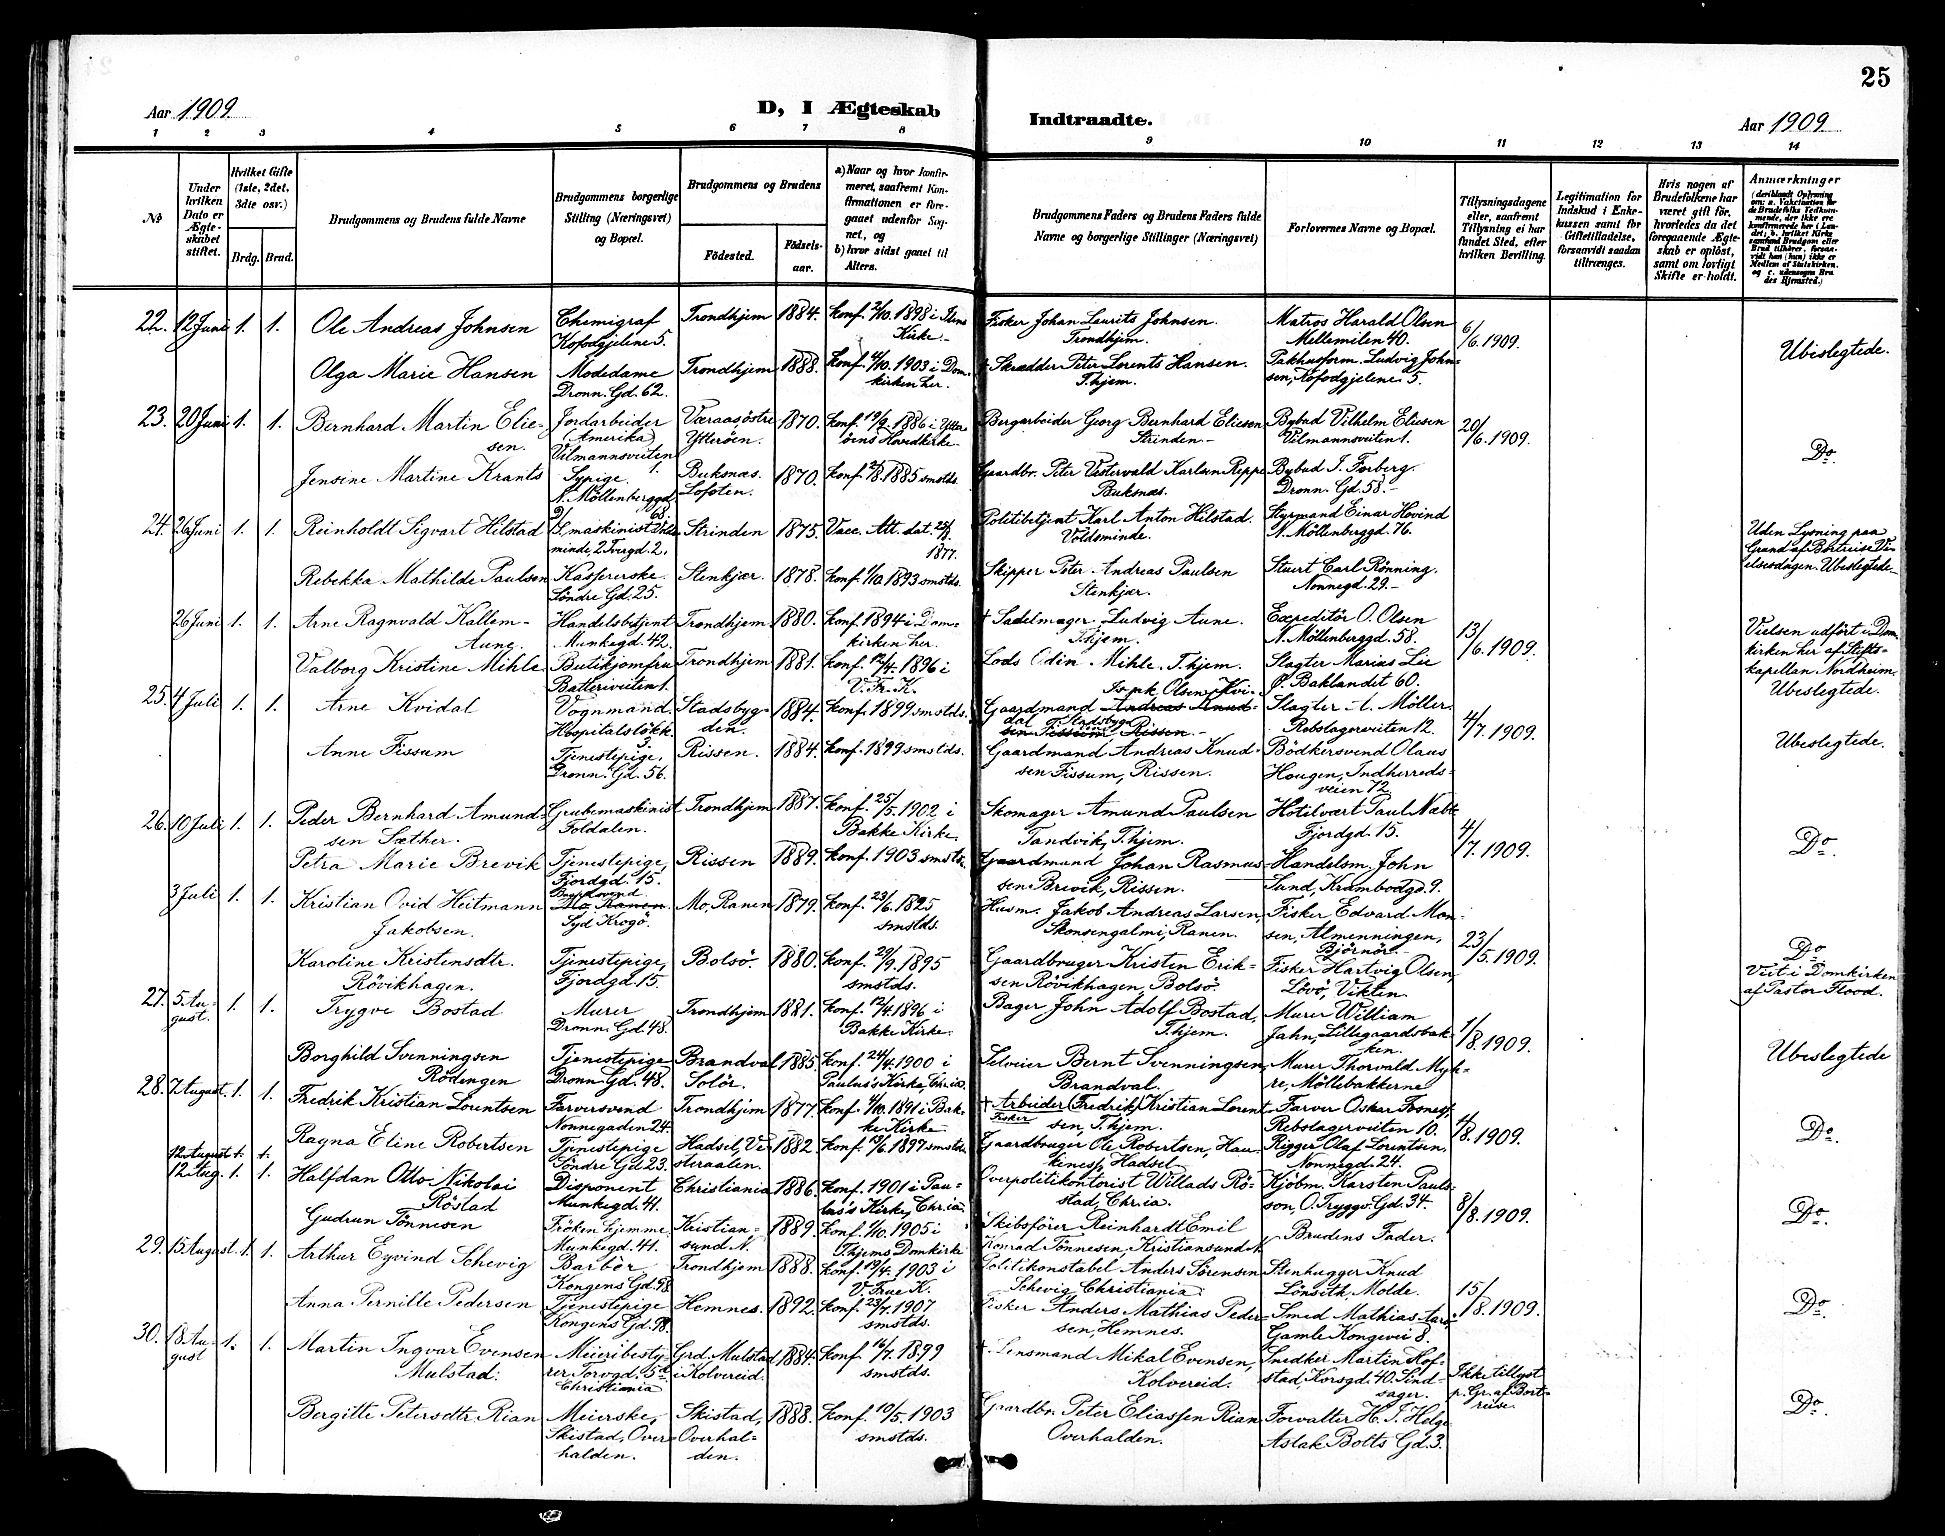 25
Aar 1909.
D, I Ægteskab
Indtraadte.
Aar 1909.
1 2 3 4 5 6 7 8 9 10 11 12 13 14
No
Under hvilken Dato er Ægteskabet stiftet.
Hvilket Gifte (1ste, 2det, 3die osv.)
Brdg. Brud.
Brudgommens og Brudens fulde Navne
Brudgommens borgerlige Stilling (Næringsvei) og Bopæl.
Brudgommens og Brudens
Födested.
Födselsaar.
a) Naar og hvor konfirmeret, saafremt Konfirmationen er foregaaet udenfor Sognet, og
b) hvor sidst gaaet til Alters.
Brudgommens Faders og Brudens Faders fulde Navne og borgerlige Stillinger (Næringsvei)
Forlovernes Navne og Bopæl.
Tillysningsdagene eller, saafremt Tillysning ei har fundet Sted, efter hvilken Bevilling.
Legitimation for Indskud i Enkekassen samt for Giftetilladelse, forsaavidt saadan tiltrænges.
Hvis nogen af Brudefolkene har været gift för, hvorledes da det foregaaende Ægteskab er oplöst, samt om lovligt Skifte er holdt.
Anmærkninger
22. 12 Juni 1. 1. Ole Andreas Johnsen
Chemigraf Kofodgjelene 5.
Trondhjem 1884. Konf. 2/10. 1898 i Ilens Kirke.
Fisker Johan Laurits Johnsen. Trondhjem.
Matros Harald Olsen Mellemilen 40.
6/6. 1909.
Ubeslegtede.
Olga Marie Hansen
Modedame Dronn. Gd. 62.
Trondhjem 1888. Konf. 4/10. 1903 i Domkirken her.
† Skrædder Peter Lorents Hansen. T.hjem.
Pakhusform. Ludvig Johnsen, Kofodgjelene 5.
23. 20 Juni 1. 1. Bernhard Martin Eliesen.
Jordarbeider (Amerika) Vilmannsveiten 1.
Væraasöstre Ytteröen. 1870. Konf. 19/9. 1886 i Ytteröens Hovedkirke.
Bergarbeider Georg Bernhard Eliesen Strinden.
Bybud Vilhelm Eliesen Vilmannsveiten 1.
20/6. 1909.
Do.
Jensine Martine Krants
Sypige. N. Möllenberggd. 68.
Buksnæs. Lofoten. 1870. 1885 smstds.
Gaardbr. Peter Vestervald Karlsen Reppe Buksnæs.
Bybud J. Forberg. Dronn. Gd. 58.
24. 26 Juni 1. 1. Reinholdt Sigvart Hilstad
Strinden 1875. Vacc. Att. dat. 1877.
Politibetjent Karl Anton Hilstad. Voldsminde.
Styrmand Einar Hovind N. Möllenberggd. 76.
Uden Lysning paa Grund af Bortreise Vielsesdagen. Ubeslegtede.
Rebekka Mathilde Paulsen
Kassererske. Söndre Gd. 25.
Stenkjær. 1878. Konf. 1/10. 1893 smstds.
Skipper Peter Andreas Paulsen Stenkjær.
Stuert Carl Rönning. Nonnegd. 29.
26 Juni 1. 1. Arne Ragnvald Kallem-Aune.
Handelsbetjent Munkegd. 42.
Trondhjem 1880. Konf. 1894 i Domkirken her.
† Sadelmager Ludvig Aune. T.hjem.
Expeditör O. Olsen N. Möllenberggd. 58.
13/6. 1909.
Vielsen udfört i Domkirken her af Stiftskapellan Nordheim. Ubeslegtede.
Valborg Kristine Mihle
Butikjomfru Batteriveiten 1.
Trondhjem 1881. Konf. 12/4. 1896 i V. Fr. K.
Lods Odin Mihle. T.hjem.
Slagter Marius Lie Ø. Baklandet 60.
25. 4 Juli 1. 1. Arne Kvidal
Vognmand Hospitalslökk. 3.
Stadsbygden. 1884. Konf. 1899 smstds.
Gaardmand Isak Olsen Kvidal Stadsbygd
Slagter A. Möller. Rebslagerveiten 12.
4/7. 1909.
Ubeslegtede.
Anne Fissum
Tjenestepige, Dronn. Gd. 56.
Rissen. 1884. Konf. 1899 smstds.
Gaardmand Andreas Knudsen Fissum, Rissen.
Bödkersvend Olaus Hougen, Indherredsveien 72
26. 10 Juli 1. 1. Peder Bernhard Amundsen Sæther.
Grubemaskinist Foldalen.
Trondhjem 1887. Konf. 25/5. 1902 i Bakke Kirke.
Skomager Amund Paulsen Tandvik, T.hjem.
Hotelvært Paul Næbb Fjordgd. 15.
4/7. 1909.
Do.
Petra Marie Brevik
Tjenestepige, Fjordgd. 15.
Rissen 1889. Konf. 1903 smstds.
Gaardmand Johan Rasmussen Brevik, Rissen.
Handelsm. John Sund, Krambodgd. 9.
3 Juli 1. 1. Kristian Ovid Heitmann Jakobsen.
Mo Ranen. Syd Krogö.
Mo, Ranen 1879. Konf. 23/6. 1895 smstds.
Husm. Jakob Andreas Larsen, Ranen.
Fisker Edvard Monsen, Almenningen, Björnör.
23/5. 1909.
Do.
Viet i Domkirken af Pastor Flood.
Karoline Kristensdtr. Rövikhagen.
Tjenestepige, Fjordgd. 15.
Bolsö. 1880. Konf. 29/9. 1895 smstds.
Gaardbruger Kristen Eriksen Rövikhagen, Bolsö.
Fisker Hartvig Olsen, Lövö, Vikten.
27. 5 August. 1. 1. Trygve Bostad
Murer Dronn. Gd. 48.
Trondhjem 1881. Konf. 12/4. 1896 i Bakke Kirke.
Bager John Adolf Bostad, T.hjem.
Murer William Jahn, Lillegaardsbakken.
1/8. 1909.
Ubeslegtede
Borghild Svenningsen Rödingen
Tjenestepige Dronn. Gd. 48.
Brandval Solör. 1885. Konf. 24/4. 1900 i Paulus's Kirke, Chr.ia.
Selveier Bernt Svenningsen Brandval.
Murer Thorvald Mykre, Möllebakkerne
28. 7 August. 1. 1. Fredrik Kristian Lorentsen
Farversvend Nonnegaden 24.
Trondhjem 1877. Konf. 4/10. 1891 i Bakke Kirke
† Arbeider (Fredrik) Kristian Lorentsen, T.hjem.
Fisker
Farver Oskar Fosnes, Rebslagerveiten 10.
1/8. 1909.
Do.
Ragna Eline Robertsen
Tjenestepige Söndre Gd. 23.
Hadsel, Vesteraalen. 1882. Konf. 13/6. 1897 smstds
Gaardbruger Ole Robertsen, Haukenes, Hadsel
Rigger Olaf Lorentsen, Nonnegd. 24.
12 August 1. 1.
12 Aug. 1. 1. Halfdan Otto Nikolai Röstad
Disponent Munkegd. 41.
Christiania 1886. Konf. 1901 i Paulus's Kirke, Chr.ia.
Overpolitikontorist Willads Röstad, Chr.ia.
Kjöbm. Karsten Paulsson, O. Tryggv. Gd. 34.
8/8. 1909.
Do.
Gudrun Tönnesen
Fröken hjemme Munkegd. 41.
Kristiansund N. 1889. Konf. 1/10. 1905 i T.hjems Domkirke
Skibsförer Reinhardt Emil Konrad Tönnesen, Kristiansund N.
Brudens Fader.
29. 15 August. 1. 1. Arthur Eyvind Schevig
Barbér Kongens Gd. 98.
Trondhjem 1888. Konf. 19/4. 1903 i V. Frue K.
Politikonstabel Anders Sörensen Schevig Christiania
Stenhugger Knud Lönseth, Molde.
15/8. 1909.
Do.
Anna Pernille Pedersen
Tjenestepige Kongens Gd. 98.
Hemnes. 1892. Konf. 23/7. 1907 smstds.
Fisker Anders Mathias Pedersen, Hemnes.
Smed Mathias Gamle Kongevei 8.
30. 18 August 1. 1. Martin Ingvar Evensen Mulstad.
Meieribestyrer Torvgd. 5 Christiania
Grd. Mulstad i Kolvereid. 1884. Konf. 16/7. 1899 smstds.
† Lensmand Mikal Evensen, Kolvereid.
Snedker Martin Hofstad, Korsgd. 40. Sindsager.
Ikke tillyst p. Gr. af Bortreise.
Do.
Bergitte Petersdtr. Rian
Meierske, Skistad, Overhalden.
Skistad, Overhalden. 1888. Konf. 10/5. 1903 smstds.
Gaardbr. Peter Eliassen Rian Overhalden.
Forvalter H. J. Helge Aslak Bolts Gd. 3.